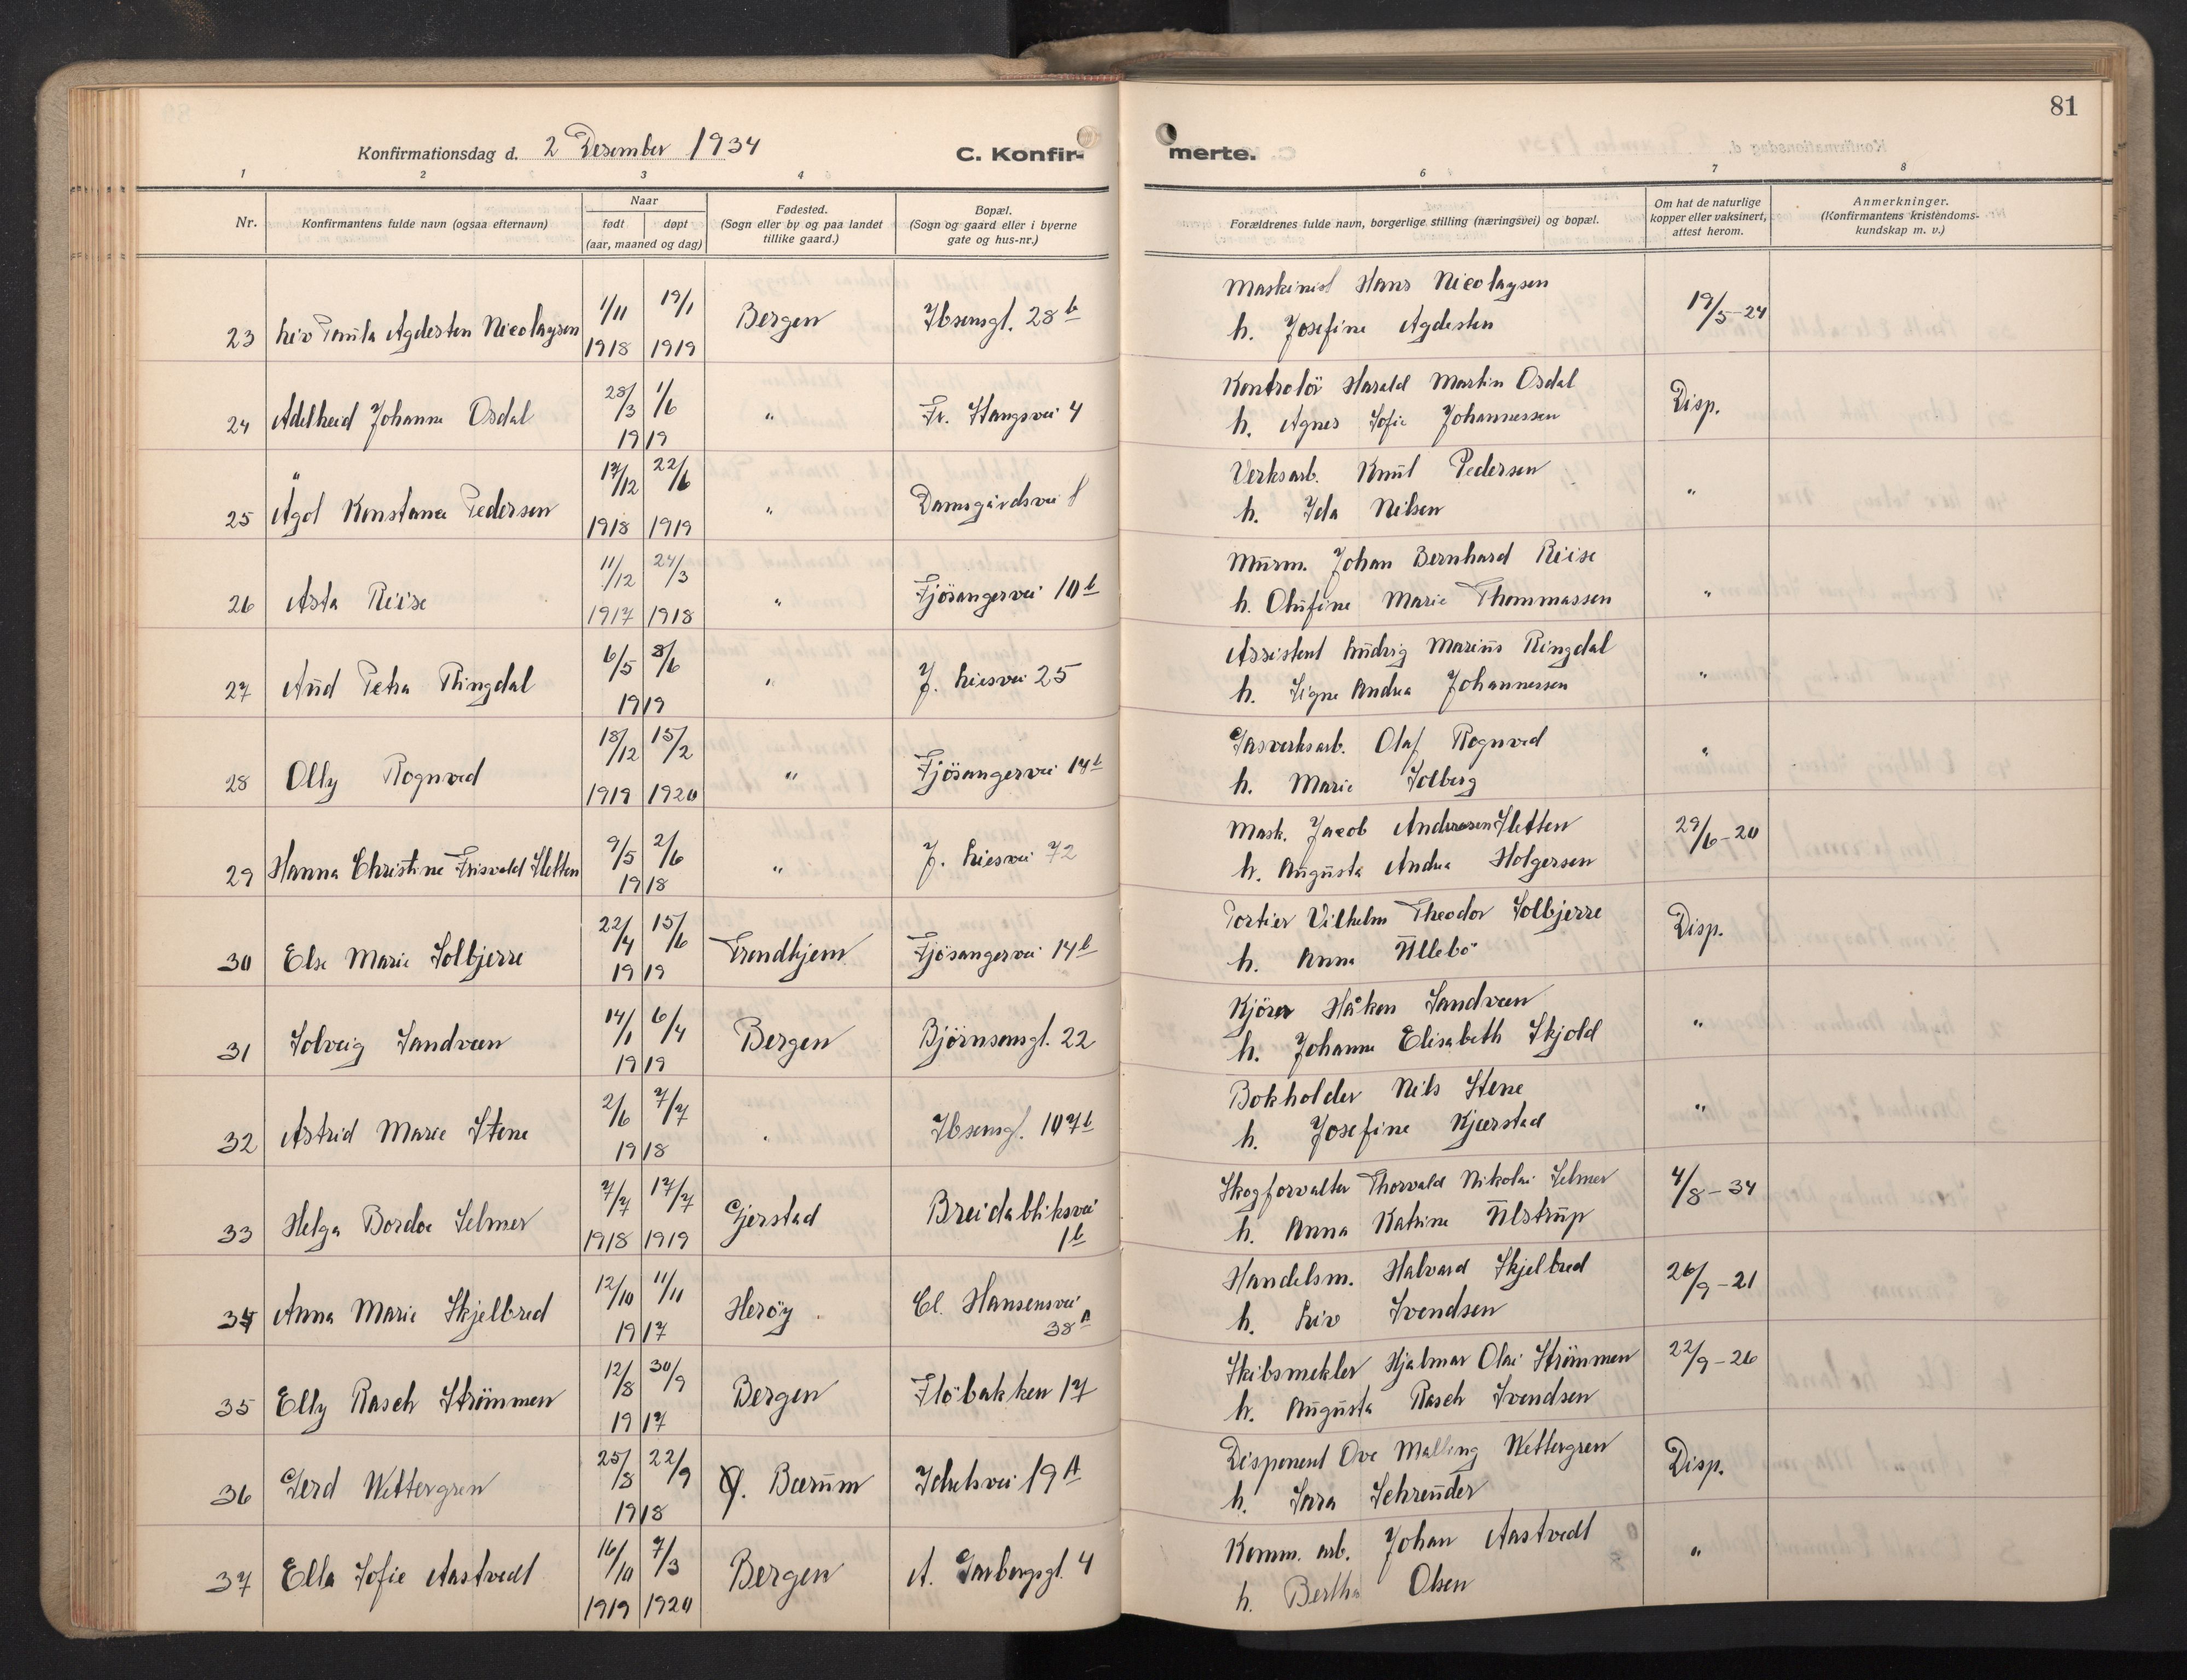 81
Konfirmationsdag d. 2 Desember 1934
C. Konfir-
merte.
1 2 3 4
6 7 8
Nr.
Konfirmantens fulde navn (ogsaa efternavn)
Naar
født døpt
(aar, maaned og dag)
Fødested.
(Sogn eller by og paa landet
tillike gaard.)
Bopæl.
(Sogn og gaard eller i byerne
gate og hus-nr.)
Forældrenes fulde navn, borgerlige stilling (næringsvei) og bopæl.
Om hat de naturlige
kopper eller vaksinert,
attest herom.
Anmerkninger.
(Konfirmantens kristendoms-
kundskap m. v.)
23 Liv Paula Agdesten Nicolaysen 1/11 1918 19/1 1919 Bergen Ibsensgt. 28 b
Maskinist Hans Nicolaysen
h. Josefine Agdesten
19/5-24
24 Adelheid Johanne Osdal 28/3 1/6 1919 " Fr. Stangsvei 4
Kontrolör Harald Martin Osdal
h. Agnes Sofie Johannessen
Disp.
25 Ågot Konstance Pedersen 17/12 1918 22/6 1919 " Damsgårdsvei
Verksarb. Knut Pedersen
h. Ida Nilsen
"
26 Asta Reise 11/12 1917 24/3 1918 " Fjösangervei 10 b
Murm. Johan Bernhard Reise
h. Olufine Marie Thommassen
"
27 Aud Petra Ringdal 6/5 8/6 1919 " J. Liesvei 25
Assistent Ludvig Marius Ringdal
h. Signe Andrea Johannessen
"
28 Olly Rognved 18/12 1919 15/2 1920 " Fjösangervei 14 b
Gasverksarb. Olaf Rognved
h. Marie Solberg
"
29 Hanna Christine Frisvold Sletten 9/5 2/6 1918 " J. Liesvei 72
Mask. Jacob Andreasen Sletten
h. Augusta Andrea Holgersen
29/6-20
30 Else Marie Solbjerre 22/4 15/6 1919 Trondhjem Fjösangervei 14 b
Portier Vilhelm Theodor Solbjerre
h. Anna Ullebö
Disp.
31 Solveig Sandveen 14/1 6/4 1919 Bergen Björnsonsgt. 22
Kjörer Håken Sandveen
h. Johanne Elisabeth Skjold
"
32 Astrid Marie Stene 2/6 7/7 1918 " Ibsensgt. 107 b
Bokholder Nils Stene
h. Josefine Kjærstad
"
33 Helga Bordoe Selmer 7/7 1918 17/7 1919 Gjerstad Breidabliksvei
1 b
Skogforvalter Thorvald Nikolai Selmer
h. Anna Katrine Ulstrup
4/8-34
34 Anna Marie Skjelbred 12/10 11/11 1917 Heröy Cl. Hansensvei
38 A
Handelsm. Halvard Skjelbred
h. Liv Svendsen
26/9-21
35 Elly Rasch Strömmen 12/8 30/9 1917 Bergen Flöbakken 17
Skibsmekler Hjalmar Olai Strömmen
h. Augusta Rasch Svendsen
22/9-26
36 Gerd Wettergren 25/8 22/9 1918 Ø. Bærum 19 A
Disponent Ove Malling Wettergren
h. Sara Schreuder
Disp.
37 Ella Sofie Aastvedt 16/10 1919 7/3 1920 Bergen A. Garborgsgt. 4
Komm. arb. Johan Aastvedt
h. Bertha Olsen
"